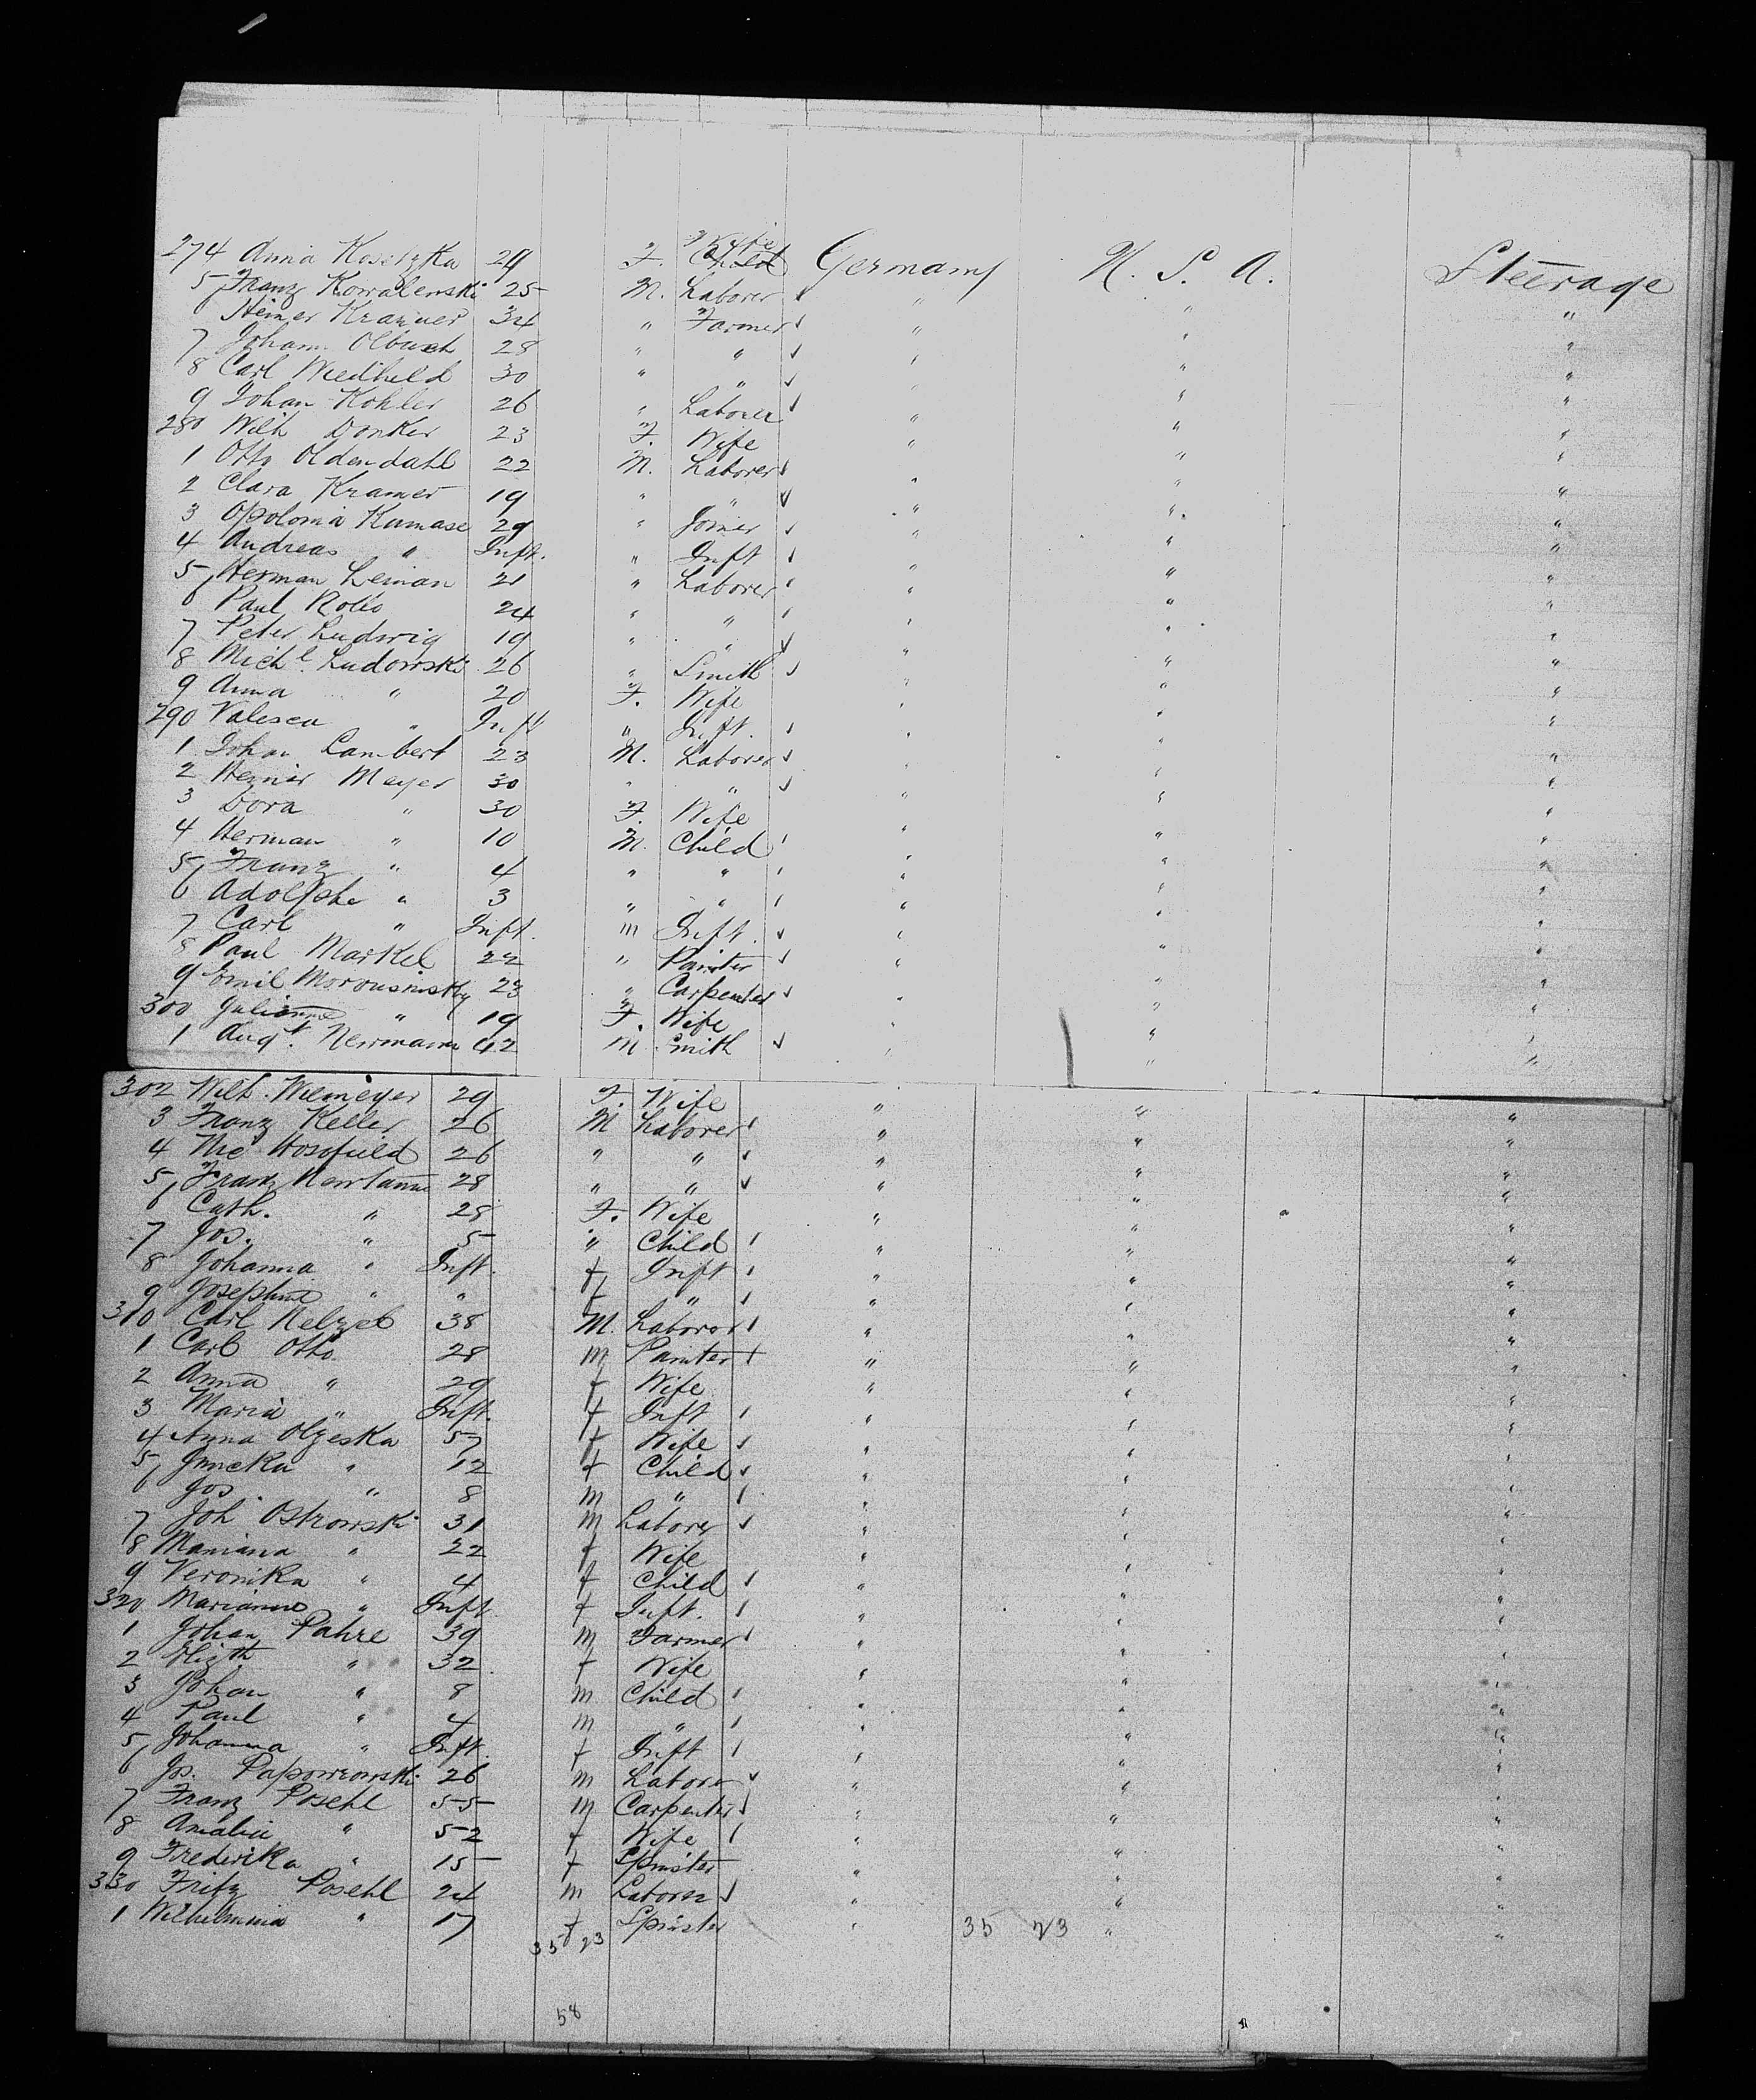 274 Anna Kosetzka 29 F. Wife Child Germany U. S. A. Steerage
5 Franz Kowalenski 25 M. Laborer " " "
6 Heiner Kramer 34 " Farmer " " "
7 Johann Olbuch 28 " " " " "
8 Carl Wiedheld 30 " " " " "
9 Johan Kohler 26 " Laborer " " "
280 Wilh Donker 23 F. Wife " " "
1 Otto Oldendahl 22 M. Laborer " " "
2 Clara Kramer 19 " " " " "
3 Opolonia Kumase 29 " Joiner " " "
4 Andreas " Inft. " Inft " " "
5 Herman Leman 21 " Laborer " " "
6 Paul Rollo 24 " " " " "
7 Peter Ludwig 19 " " " " "
8 Michl Ludowski 26 " Smith " " "
9 Anna " 20 F. Wife " " "
290 Valesca " Inft " Inft. " " "
1 Johan Lambert 23 M. Laborer " " "
2 Heiner Meyer 30 " " " " "
3 Dora " 30 F. Wife " " "
4 Herman " 10 M. Child " " "
5 Franz " 4 " " " " "
6 Adolphe " 3 " " " " "
7 Carl " Inft. m Inft. " " "
8 Paul Markel 22 " Painter " " "
9 Emil 23 " Carpenter " " "
300 Julianna " 19 F. Wife " " "
1 Augt. Newmann 42 M Smith " " "
302 Wilh. Wiemeyer 29 F. Wife " " "
3 Franz Keller 26 M Laborer " " "
4 Hosofield 26 " " " " "
5 Franz 28 " " " " "
6 Cath. " 28 F. Wife " " "
7 Jos. " 5 " Child " " "
8 Johanna " Inft. f Inft " " "
9 Josephine " " f " " " "
310 Carl Nelzel 38 M. Laborer " " "
1 Carl Otto 28 M Painter " " "
2 Anna " 29 f Wife " " "
3 Maria " Inft. f Inft " " "
4 Anna Olzeska 57 f Wife " " "
5 " 12 f Child " " "
6 Jos " 8 m " " " "
7 Joh Ostrowski 31 m Laborer " " "
8 Maniana " 22 f Wife " " "
9 Veronika " 4 f Child " " "
320 Marianne " Inft. f Inft. " " "
1 Johan Pahre 39 m Farmer " " "
2 Elizth " 32 f Wife " " "
3 Johan " 8 m Child " " "
4 Paul " 4 m " " " "
5 Johanna " Inft. f Inft " " "
6 Jos. Papowrowski 26 m Labore " " "
7 Franz Posehl 55 m Carpenter " " "
8 Amalie " 52 f Wife " " "
9 Frederika " 15 f Spinster " " "
330 Fritz Posehl 24 m Laborer " " "
1 Wilhelmina " 17 f Spinster " " "
35 23 35 23
58